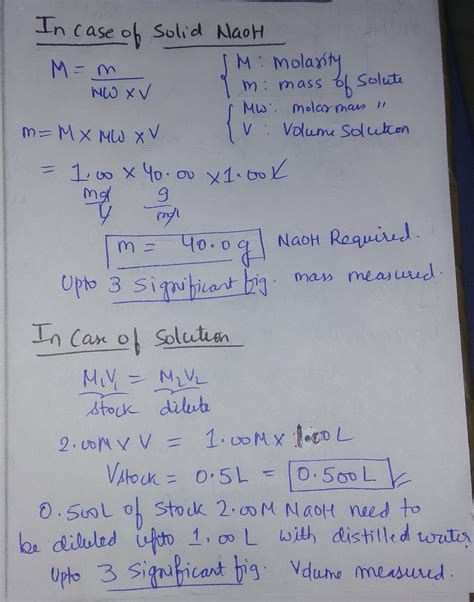 In case of Solid NaOH
M = m / MW x V
{ M : molarity
m : mass of Solute
MW : molar mass "
V : Volume Solution
m = M x MW x V
= 1.00 x 40.00 x 1.00 L
mol/L g/mol
m = 40.0 g NaOH Required.
Upto 3 Significant fig. mass measured.
In Case of Solution
M₁V₁ = M₂V₂
Stock dilute
2.00M x V = 1.00M x 1.00 L
Vstock = 0.5L = 0.500L
0.500L of Stock 2.00M NaOH need to
be diluted upto 1.00 L with distilled water
Upto 3 Significant fig. Volume measured.